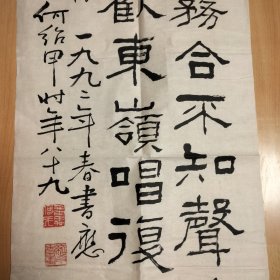 務合不知聲
歡東嶺唱復
一九九二年春書應
何紹甲時年八十九